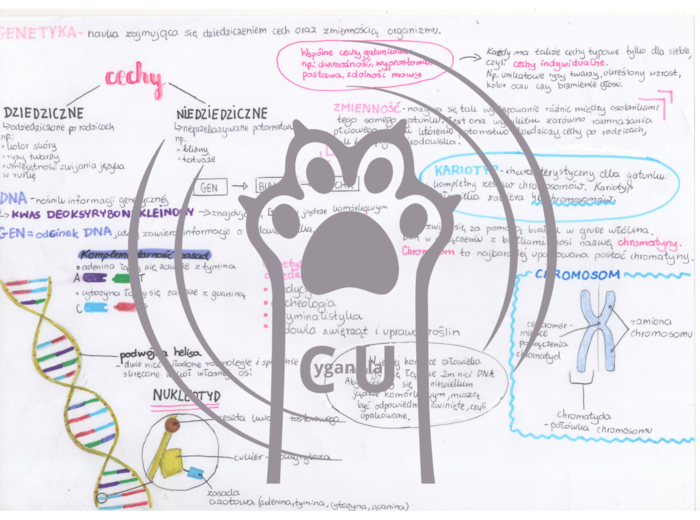 GENETYKA - nauka zajmująca się dziedziczeniem cech oraz zmiennością organizmu.
cechy
Wspólne cechy gatunku
np: dwunożność, wyprostowana
postawa, zdolność mowy
Każdy ma także cechy typowe tylko dla siebie
czyli cechy indywidualne.
Np: unikatowe rysy twarzy, określony wzrost,
kolor oczu czy brzmienie głosu.
DZIEDZICZNE
odziedziczone po rodzicach
np:
kolor skóry
rysy twarzy
umiejętność zwijania języka
w rurkę
NIEDZIEDZICZNE
nieprzekazywane potomstwu
np:
blizny
tatuaże
ZMIENNOŚĆ - nazywa się tak występowanie różnic między osobnikami
tego samego gatunku. Jest ona wynikiem zarówno rozmnażania
płciowego, potomstwo dziedziczy cechy po rodzicach,
środowiska.
GEN
KARIOTYP - charakterystyczny dla gatunku
kompletny zestaw chromosomów. Kariotyp
zawiera chromosomów
DNA - nośnik informacji genetycznej
KWAS DEOKSYRYBONUKLEINOWY - jądrze komórkowym
GEN = odcinek DNA, który zawiera informacje o
się za pomocą białek w grube włókna.
DNA w połączeniu z białkami nosi nazwę chromatyny.
Chromosom to najbardziej upakowana postać chromatyny.
Komplementarność zasad
adenina łączy się zawsze z tyminą
A T
cytozyna łączy się zawsze z guaniną
C
archeologia
kryminalistyka
hodowla zwierząt i uprawa roślin
CHROMOSOM
centromer -
miejsce
połączenia
chromatyd
ramiona
chromosomu
chromatyda
- połówka chromosomu
podwójna helisa
- dwie nici ułożone równolegle i
skręcone wokół własnej osi
W jądrze komórki człowieka
2m nici DNA.
Aby się w niewielkim
jądrze komórkowym, muszą
być odpowiednio zwinięte, czyli
upakowane.
C yganula U
NUKLEOTYD
reszta kwasu fosforowego
cukier - deoksyryboza
zasada
azotowa (adenina, tymina, cytozyna, guanina)